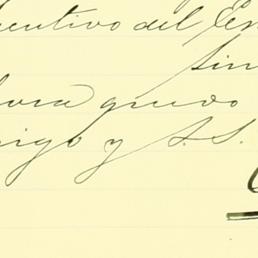 ecutivo del Es
sin
hora quedo
migo y S. S.